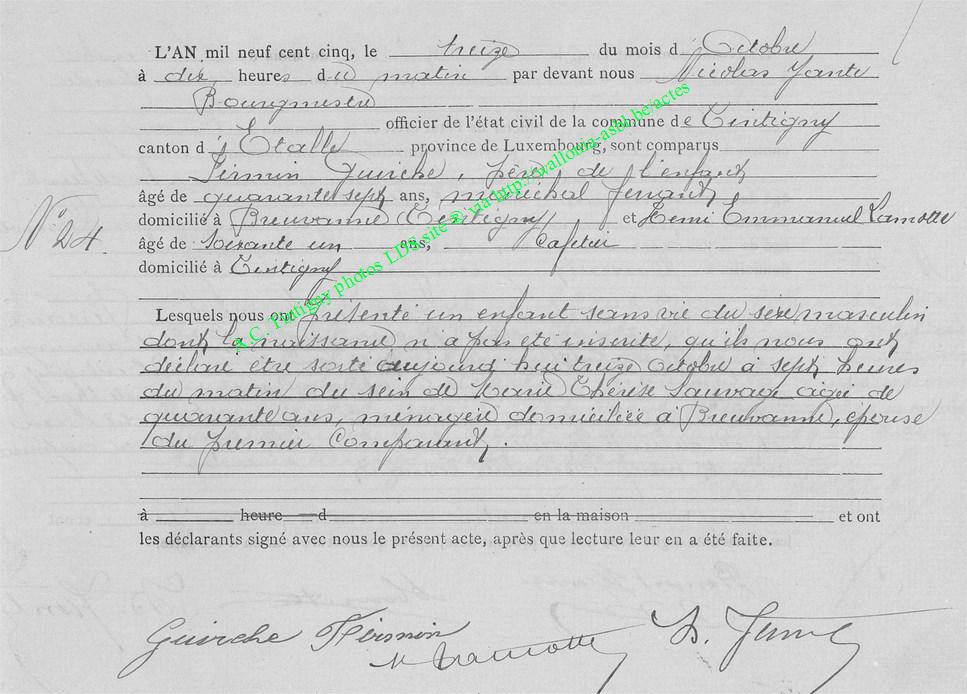 L'AN mil neuf cent cinq, le treize du mois d'Octobre
à dix heures du matin par devant nous Nicolas
Bourgmestre
officier de l'état civil de la commune de Tintigny
canton d'Etalle province de Luxembourg, sont comparus
Firmin Guirche, père de l'enfant
âgé de quarante sept ans, maréchal ferrant
domicilié à Breuvanne (Tintigny) et Henri Emmanuel Lamotte
N° 24
âgé de soixante un ans, Cafetier
domicilié à Tintigny
Lesquels nous ont présenté un enfant sans vie du sexe masculin
dont la naissance n'a pas été inscrite, qu'ils nous ont
déclaré être sorti aujourd'hui treize Octobre à sept heures
du matin du sein de Marie Thérèse Sauvage agée de
quarante ans, ménagère domiciliée à Breuvanne, épouse
du premier Comparant.
à heure d en la maison et ont
les déclarants signé avec nous le présent acte, après que lecture leur en a été faite.
Guirche Firmin
H Lamotte
A.C. Tintigny photos LDS site © via http://wallonia-asbl.be/actes